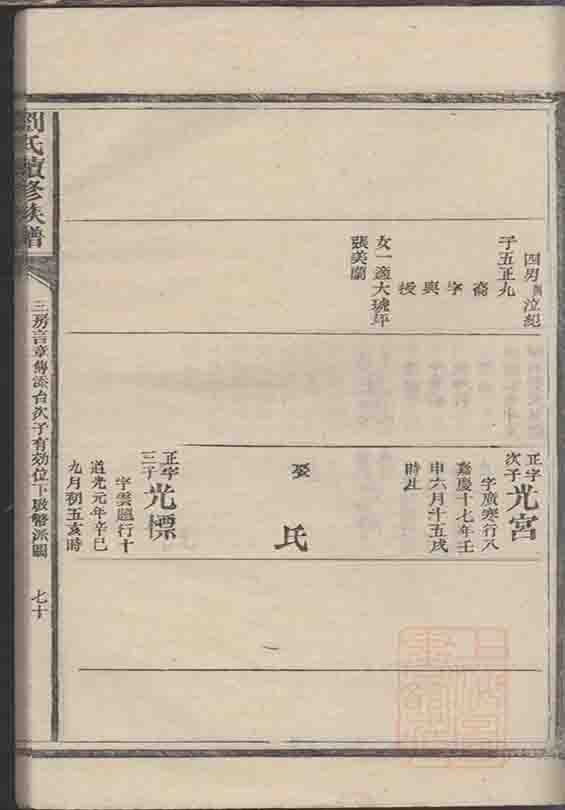 四男 泣紀
子五正九
裔
字
興
授
女一適大琥年
張美蘭
正字
次子
光宮
字廣寒行八
嘉慶十七年壬
申六月十五戌
時生
娶
氏
正字
三子
光標
字雲題行十
道光元年辛巳
九月初五亥時
劉氏續修族譜
三房言章傳添台次子有効位下啟
派圖
七十